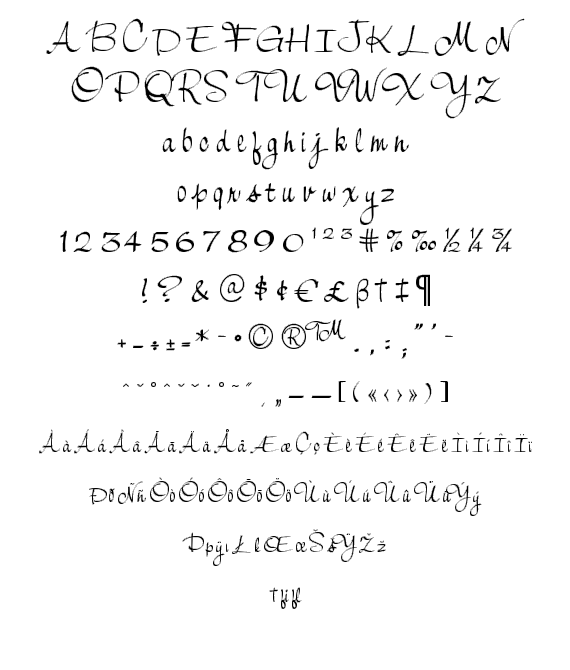 A B C D E F G H I J K L M N
O P Q R S T U V W X Y Z
a b c d e f g h i j k l m n
o p q r s t u v w x y z
1 2 3 4 5 6 7 8 9 0 ¹ ² ³ # % ‰ ½ ¼ ¾
! ? & @ $ ¢ € £ β † ‡ ¶
+ − ÷ ± = * - • © ® ™ . , : ; " ' -
[ ( « ‹ › » ) ]
À à Á á Â â Ã ã Ä ä Å å Æ æ Ç ç È è É é Ê ê Ë ë Ì ì Í í Î î Ï ï
Ð ð Ñ ñ Ò ò Ó ó Ô ô Õ õ Ö ö Ù ù Ú ú Û û Ü ü Ý ý
Þ þ ÿ ı Ł ł Œ œ Š š Ÿ Ž ž